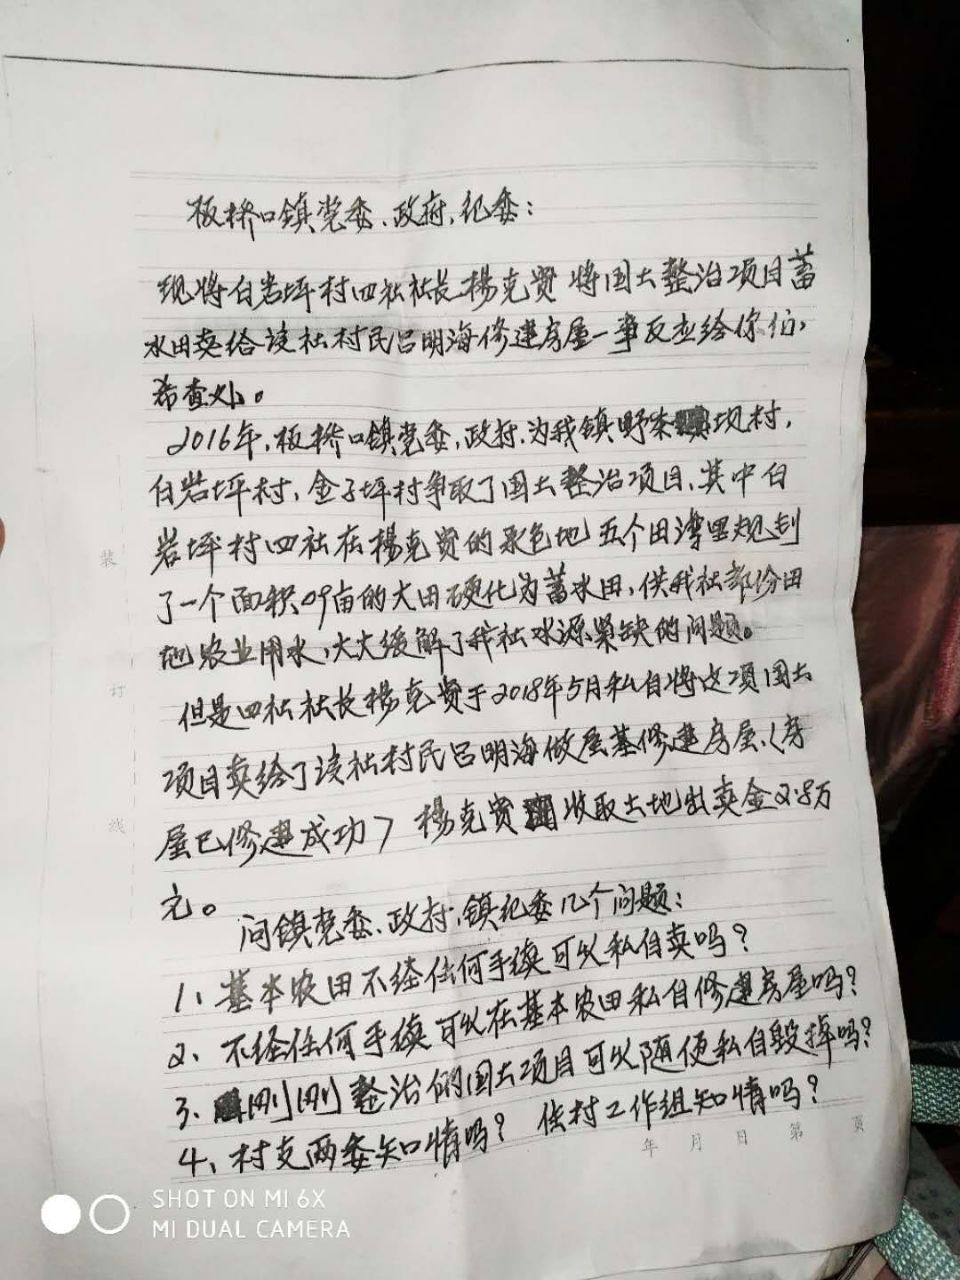 板桥口镇党委、政府、纪委：
现将白岩坪村四社社长杨克贤将国土整治项目蓄
水田卖给该社村民吕明海修建房屋一事反应给你们，
希查处。
2016年，板桥口镇党委，政府，为我镇野茶坝村，
白岩坪村，金子坪村争取了国土整治项目，其中白
岩坪村四社在杨克贤的承包地五个田湾里规划
了一个面积0.9亩的大田硬化为蓄水田，供我社部份田
地农业用水，大大缓解了我社水源紧缺的问题。
但是四社社长杨克贤于2018年5月私自将这项国土
项目卖给了该社村民吕明海做屋基修建房屋、（房
屋已修建成功） 杨克贤收取土地出卖金2.8万
元。
问镇党委、政府，镇纪委几个问题：
1、基本农田不经任何手续可以私自卖吗？
2、不经任何手续可以在基本农田私自修建房屋吗？
3、刚刚整治的国土项目可以随便私自毁掉吗？
4、村支两委知情吗？ 住村工作组知情吗？
装
订
线
年 月 日 第 页
SHOT ON MI 6X
MI DUAL CAMERA